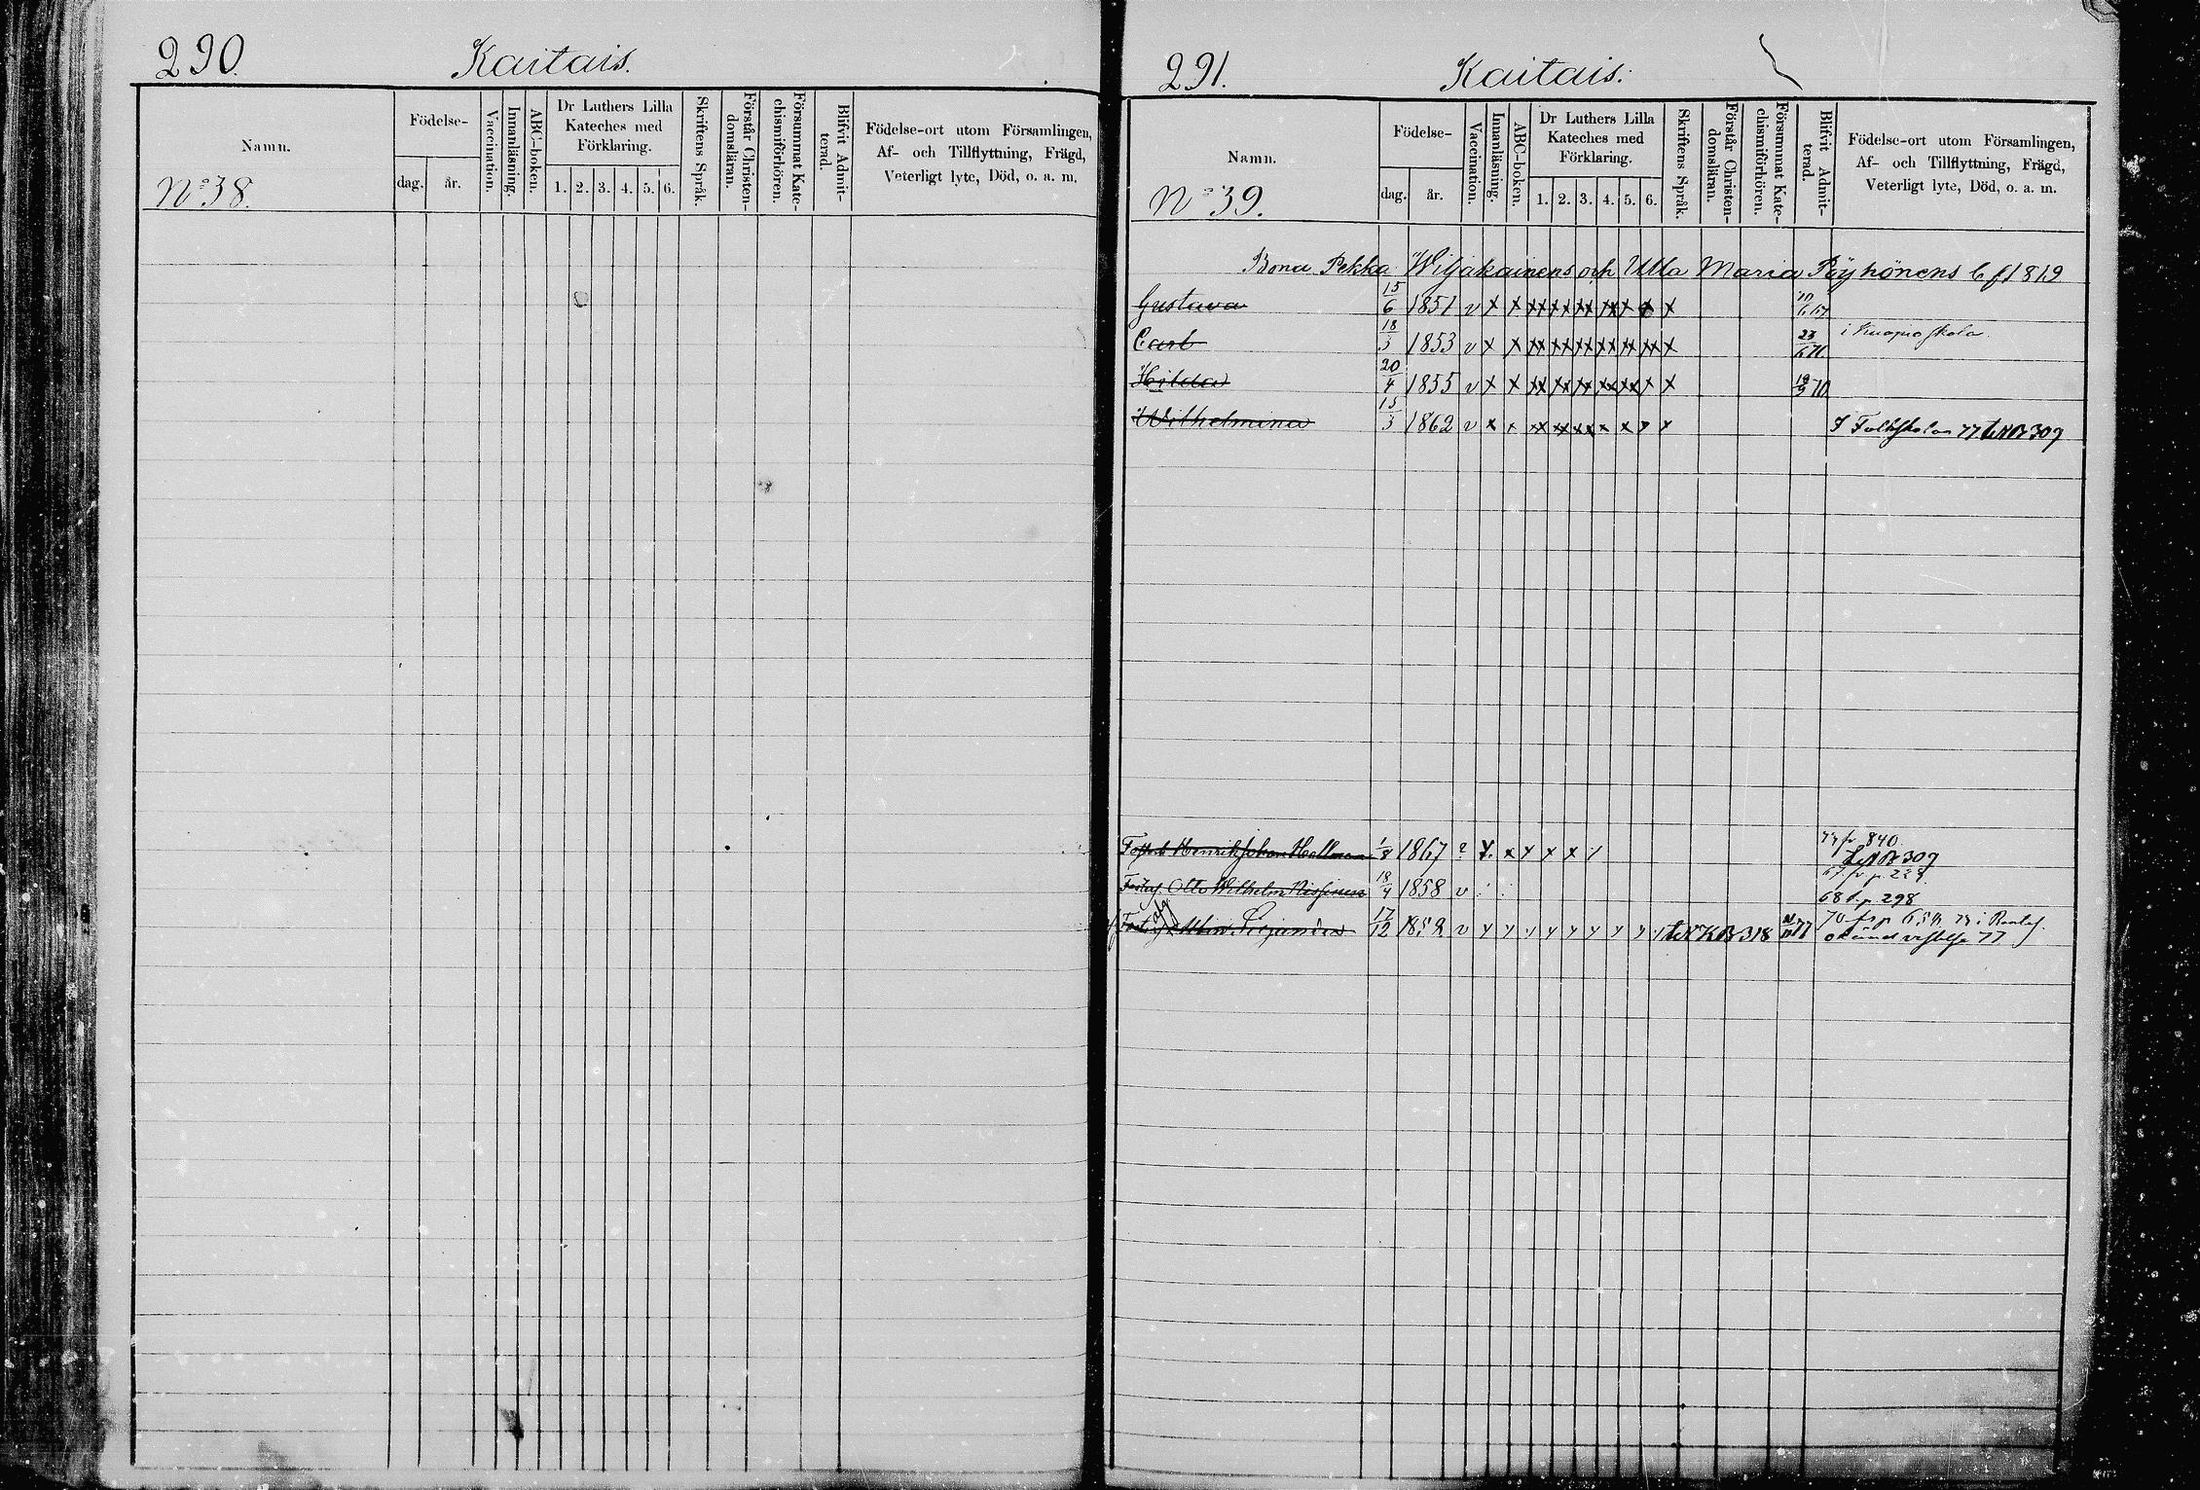 290.
Kaitais.
Namn.
Födelse-
dag.
år.
Vaccination.
Innanläsning.
ABC-boken.
Dr Luthers Lilla
Kateches med
Förklaring.
1. 2. 3. 4. 5. 6.
Skriftens Språk.
Förstår Christen-
domsläran.
Försummat Kate-
chismiförhören.
Blifvit Admit-
terad.
Födelse-ort utom Församlingen,
Af- och Tillflyttning, Frägd,
Veterligt lyte, Död, o. a. m.
No 38.
291.
Kaitais.
Namn.
Födelse-
dag.
år.
Vaccination.
Innanläsning.
ABC-boken.
Dr Luthers Lilla
Kateches med
Förklaring.
1. 2. 3. 4. 5. 6.
Skriftens Språk.
Förstår Christen-
domsläran.
Försummat Kate-
chismiförhören.
Blifvit Admit-
terad.
Födelse-ort utom Församlingen,
Af- och Tillflyttning, Frägd,
Veterligt lyte, Död, o. a. m.
No 39.
Bonu Pekka Wiljakainens och Ulla Maria Pöyhönens 1819
Gustava 15/6 1851 v x x xx xx xx xx x x x
Carl 18/3 1853 v x x xx xx xx xx xx xx x 23/6 71 i Kuopio skola
Hilda 20/4 1855 v x x xx xx xx xx xx x x
Wilhelmina 15/3 1862 v x x xx xx xx x x x x I Folkskolan 77 309
Henrik Johan Hallman 1/8 1867 ? x x x x x 77 fr 840
309
Otto Wilhelm Nissinen 18/4 1858 v 67 fr p. 228
68 t. p 298
17/12 1852 v x x x x x x x x KB 318 77 70 fr p
77